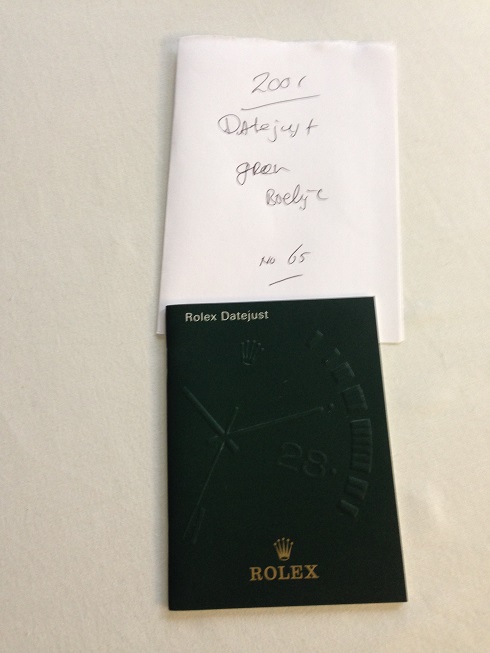 2001
Datejust
groen
Boekje
no 65
Rolex Datejust
28
ROLEX